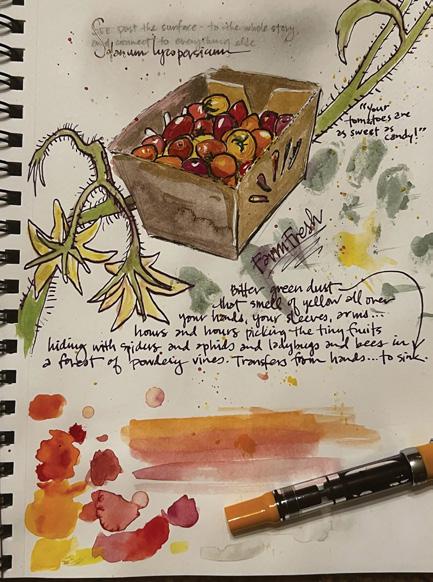 See past the surface - to the whole story,
and connect to everything else
Solanum lycopersicum
"your
tomatoes are
as sweet as
candy!"
Farm Fresh
Bitter green dust
that smell of yellow all over
your hands, your sleeves, arms...
hours and hours picking the tiny fruits
hiding with spiders and aphids and ladybugs and bees in
a forest of powdery vines. Transfers from hands... to sink.